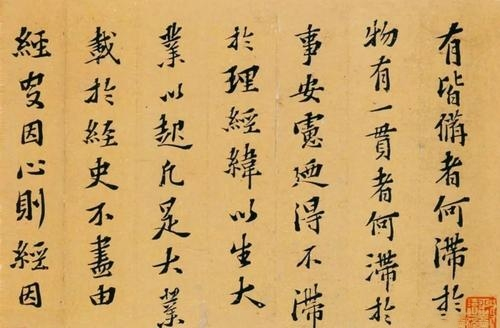 有皆備者何滯於
物有一貫者何滯於
事安慮迺得不滯
於理經緯以生大
業以起凡是大業
載於経史不盡由
經爰因心則經因